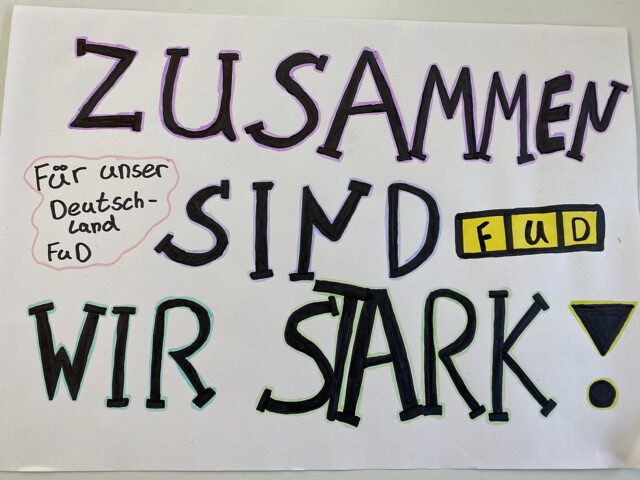 ZUSAMMEN
Für unser
Deutsch-
land
FuD
SIND
FUD
WIR STARK!